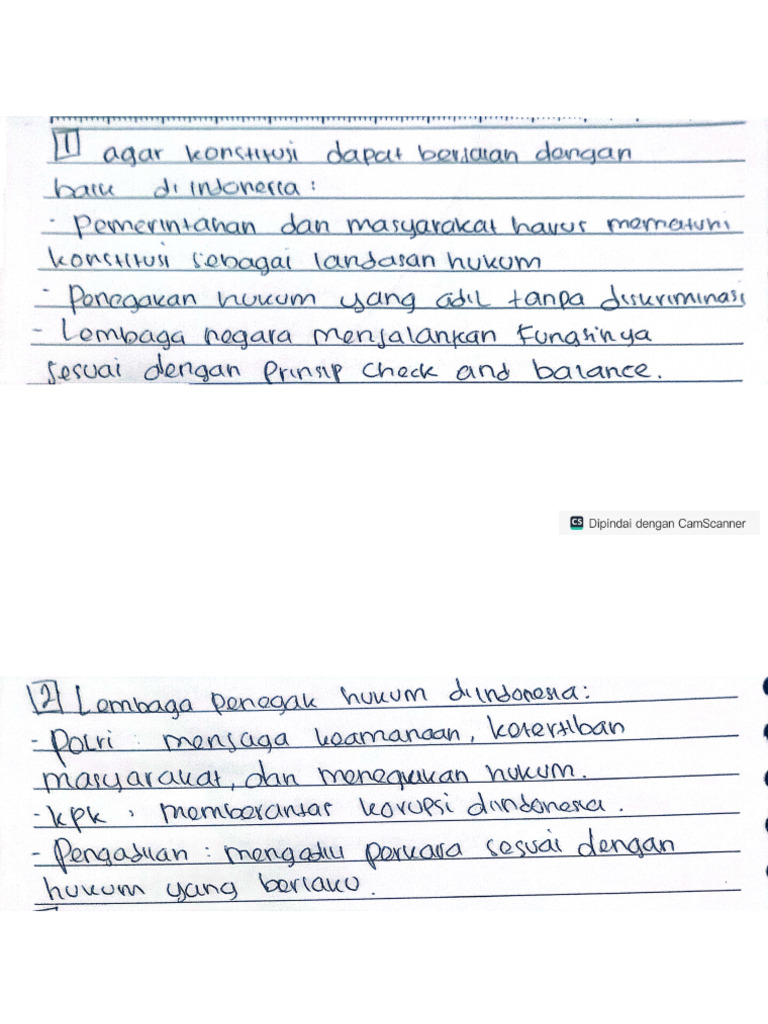 1 agar konstitusi dapat berjalan dengan
baik di indonesia :
- Pemerintahan dan masyarakat harus mematuhi
konstitusi sebagai landasan hukum
- Penegakan hukum yang adil tanpa diskriminasi
- Lembaga negara menjalankan fungsinya
sesuai dengan prinsip check and balance.
CS Dipindai dengan CamScanner
2 Lembaga penegak hukum diindonesia :
- Polri : menjaga keamanaan, ketertiban
masyarakat, dan menegakan hukum.
- kpk : memberantas korupsi diindonesia.
- Pengadilan : mengadili perkara sesuai dengan
hukum yang berlaku.